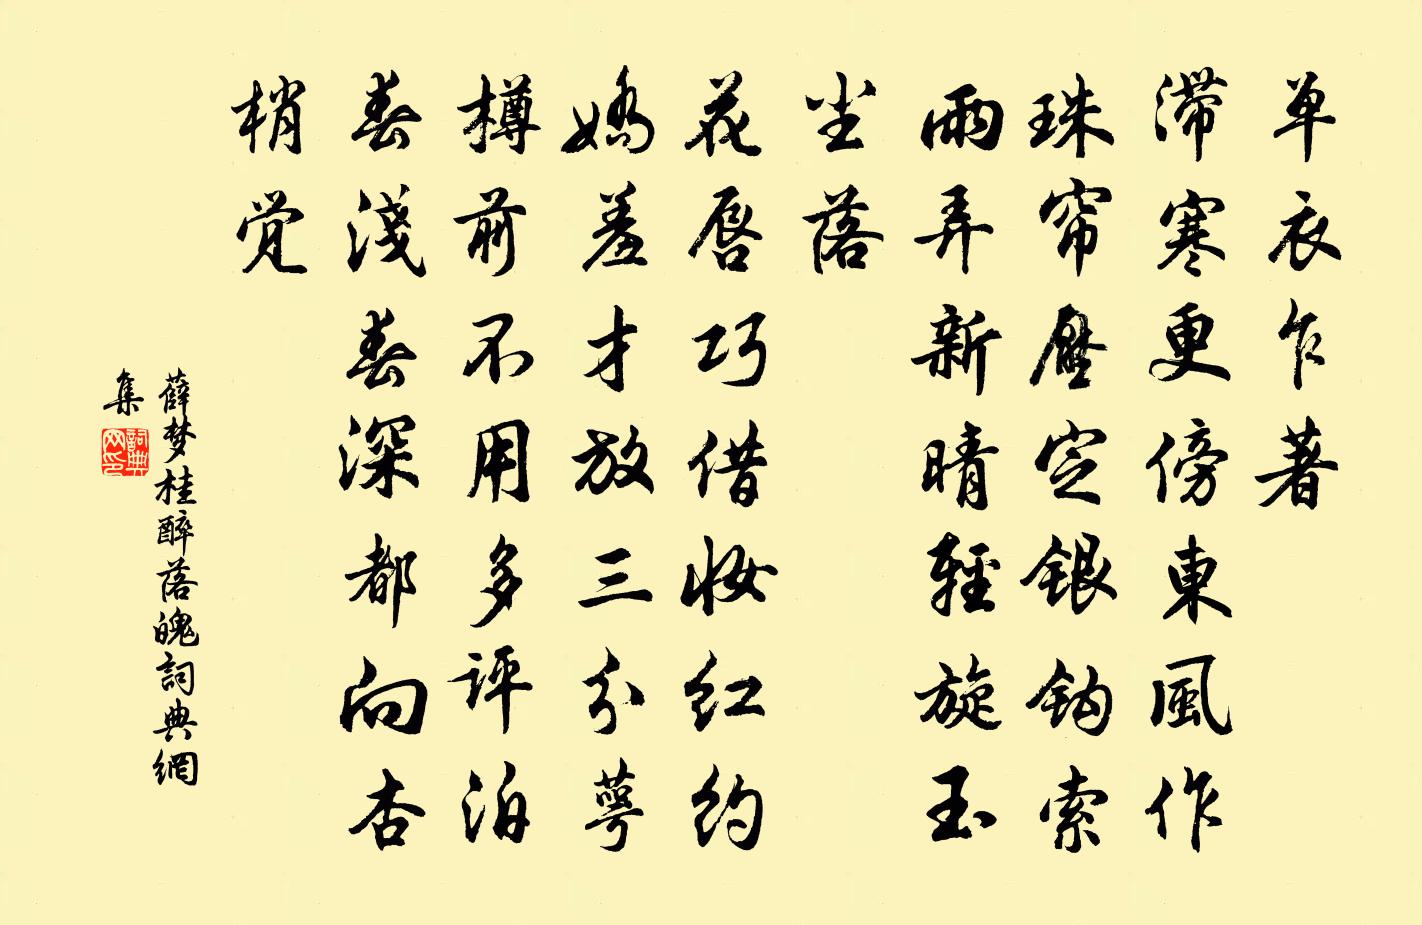 单衣乍著
滞寒更傍東風作
珠帘壓定銀鈎索
雨弄新晴輕旋玉
尘落
花唇巧借妝红约
嬌羞才放三分萼
樽前不用多评泊
春淺春深都向杏
梢觉
薛梦桂醉落魄詞典網
集
詞典网印